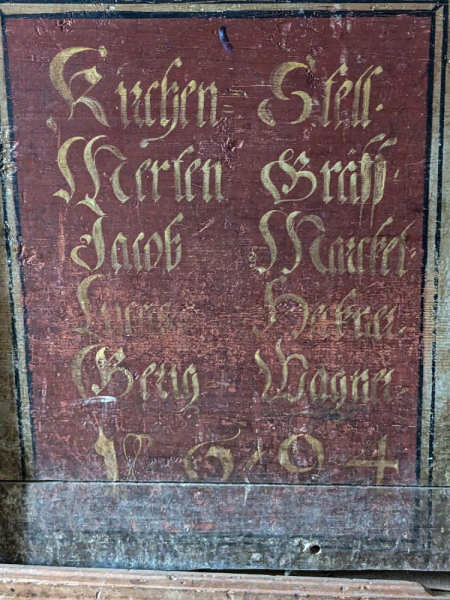 Kirchen= Stell.
Merten Gräff
Jacob Marckel.
Georg Wagner
1694